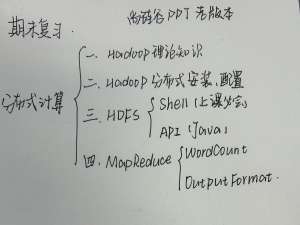 期末复习.
尚硅谷PPT老版本
分布式计算
一. Hadoop 理论知识
二. Hadoop 分布式安装、配置
三. HDFS
Shell (上课
API (Java)
四. MapReduce
WordCount
OutputFormat.